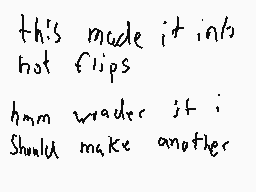 this made it into
hot flips
hmm wonder if i
Should make another